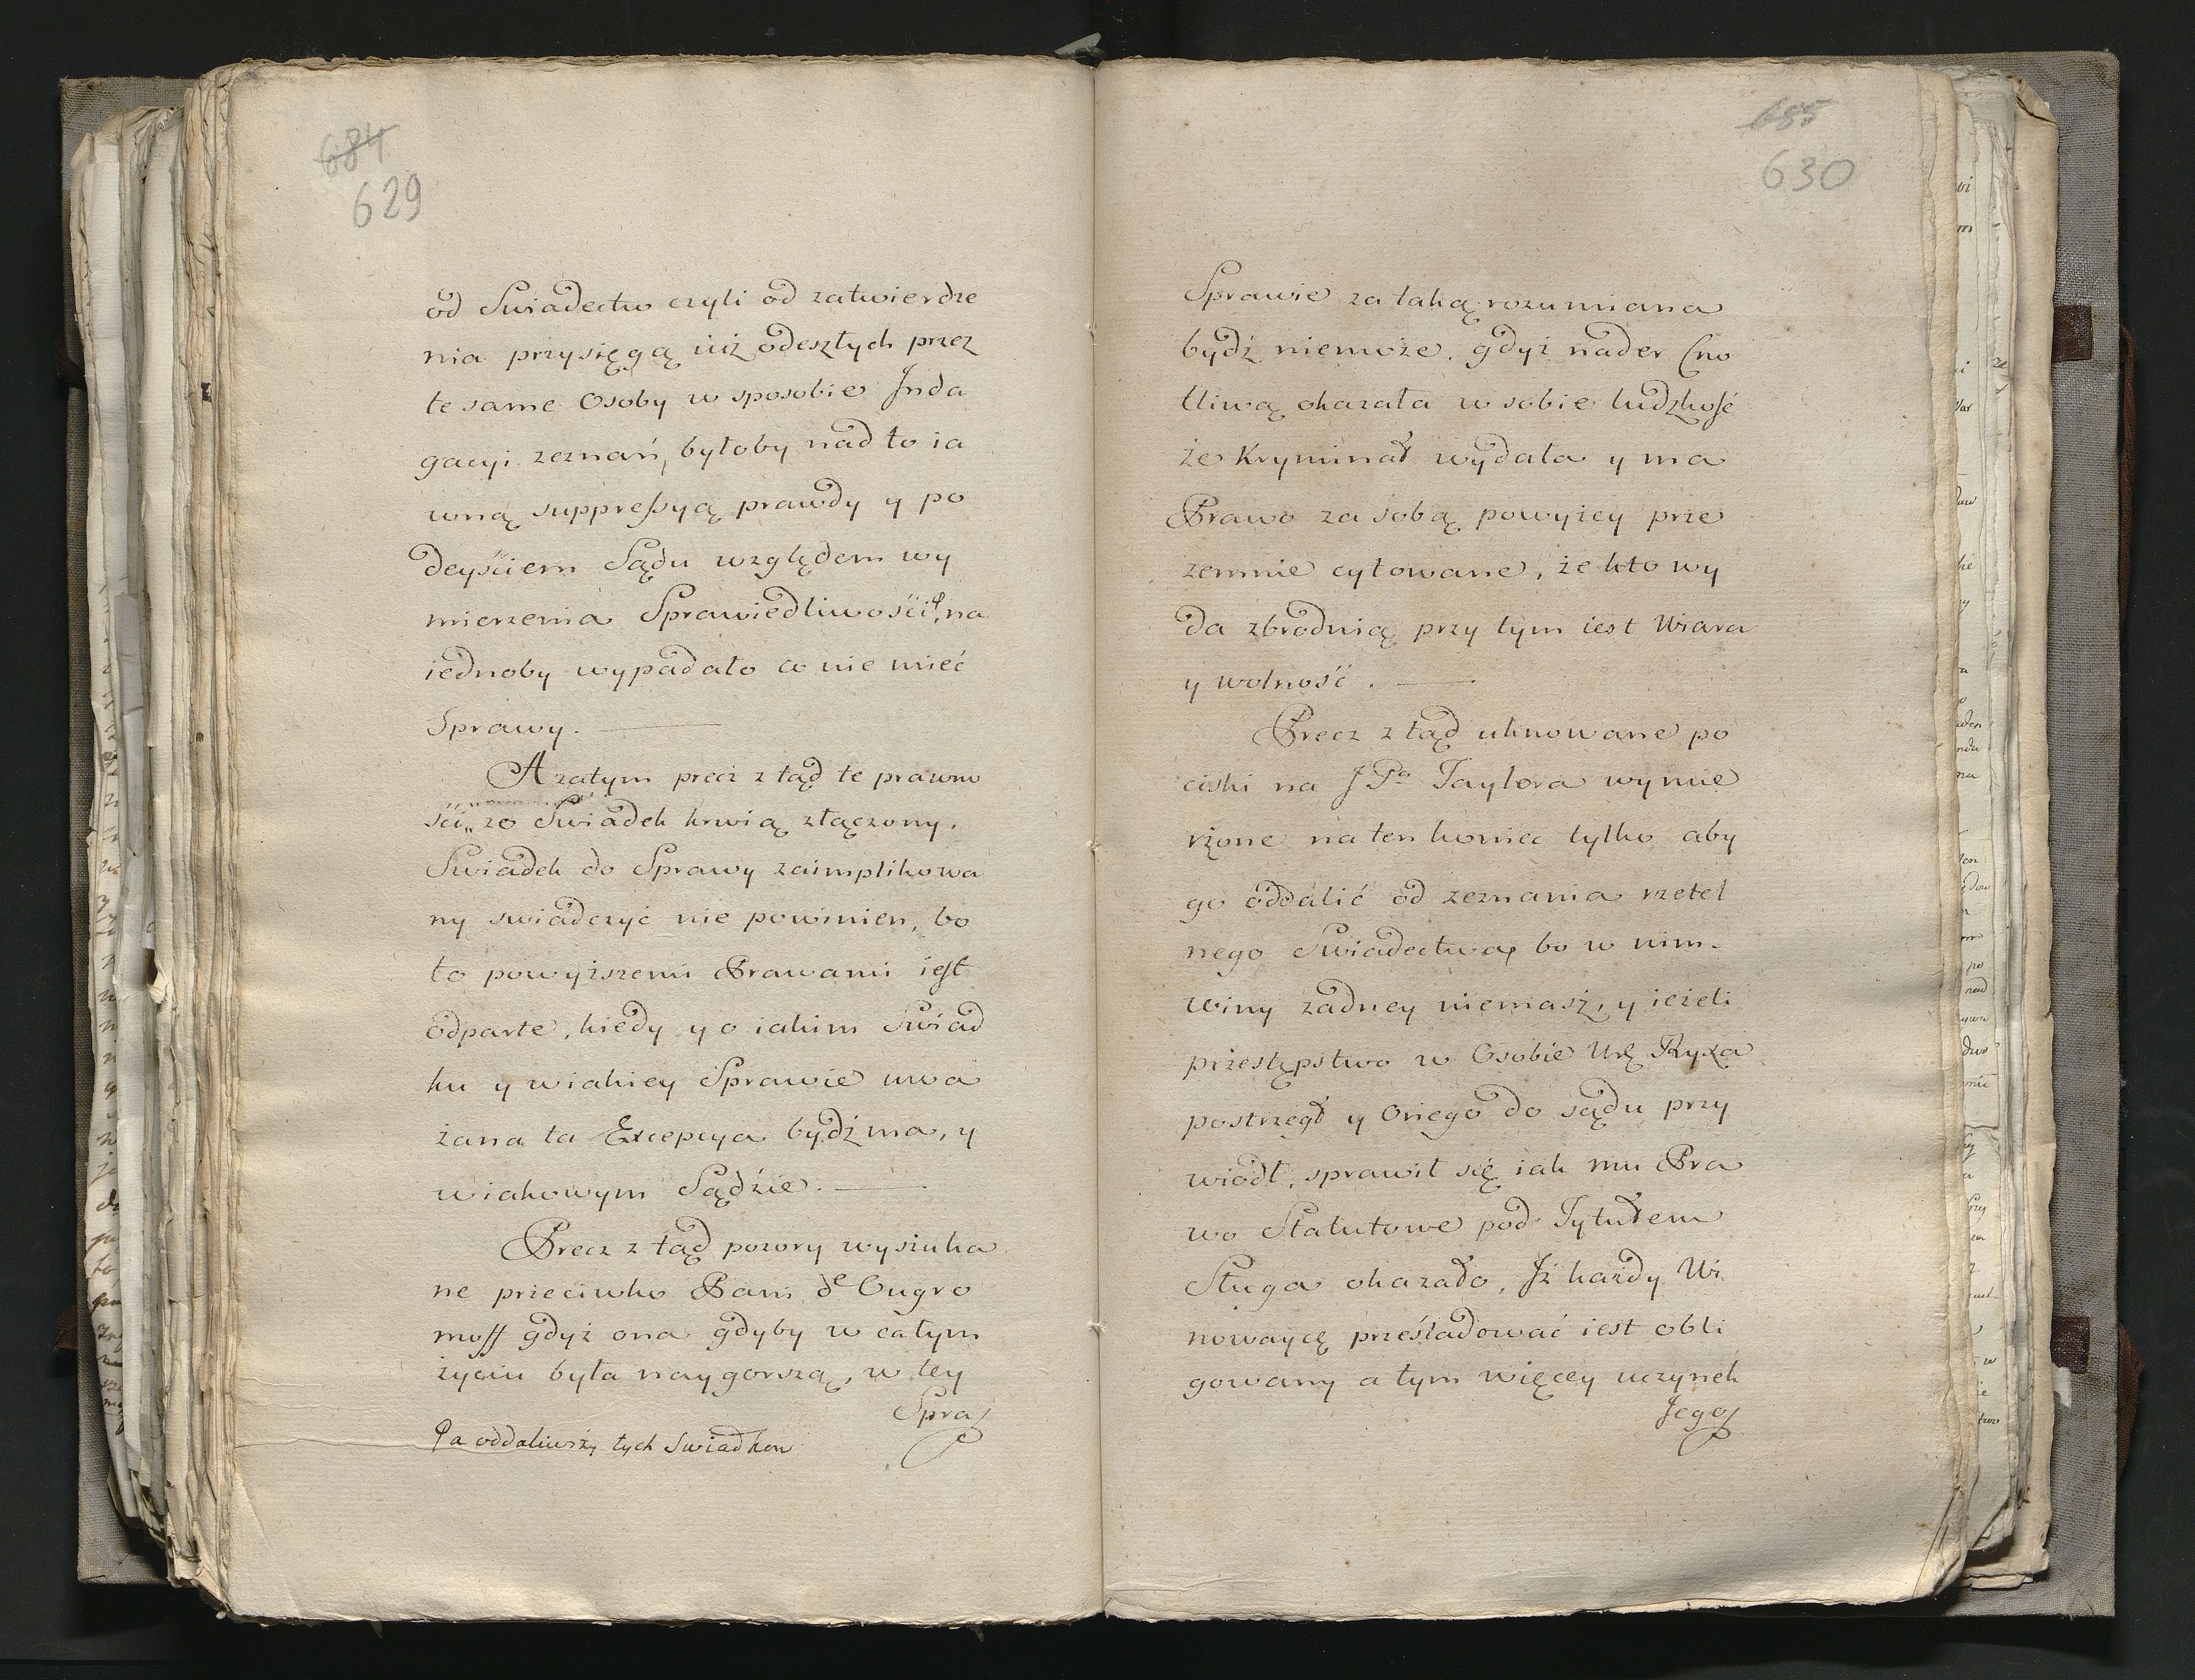 684
629
od Swiadectw czyli od zatwierdze
nia przysięgą iuż odeszłych przez
te same Osoby w sposobie Inda
gacyi zeznań, byłoby nad to ia
wną suppressyą prawdy y po
deyściem Sądu względem wy
mierzenia Sprawiedliwości, na
iednoby wypadało co nie mieć
Sprawy.
A zatym precz z tąd te prawno
ści„ ze Swiadek krwią złączony.
Swiadek do Sprawy zaimplikowa
ny swiadczyć nie powinien, bo
to powyższemi Prawami iest
odparte, kiedy y o iakim Swiad
ku y wiakiey Sprawie uwa
żana ta Excepcya bydź ma, y
wiakowym Sądzie.
Precz z tąd pozory wyszuka
ne przeciwko Pani de Ougro
moff gdyż ona gdyby w całym
życiu była naygorszą, w tey
Spra
a oddaliwszy tych Swiadkow
685
630
Sprawie za taką rozumiana
bydź niemoże, gdyż nader Cno
tliwą okazała w sobie ludzkość
że Kryminał wydała y ma
Prawo za sobą powyżey prze
zemnie cytowane, że kto wy
da zbrodnią przy tym iest Wiara
y wolność.
Precz z tąd uknowane po
ciski na J Pa Taylora wymie
rzone na ten koniec tylko aby
go oddalić od zeznania rzetel
nego Swiadectwa, bo w nim
winy żadney niemasz, y ieżeli
przestępstwo w Osobie Ur. Ryxa
postrzegł y Onego do sądu przy
wiódł, sprawił się iak mu Pra
wo Statutowe pod Tytułem
Sługa okazało, Iż każdy Wi
nowaycę prześladować iest obli
gowany a tym więcey uczynek
Jego